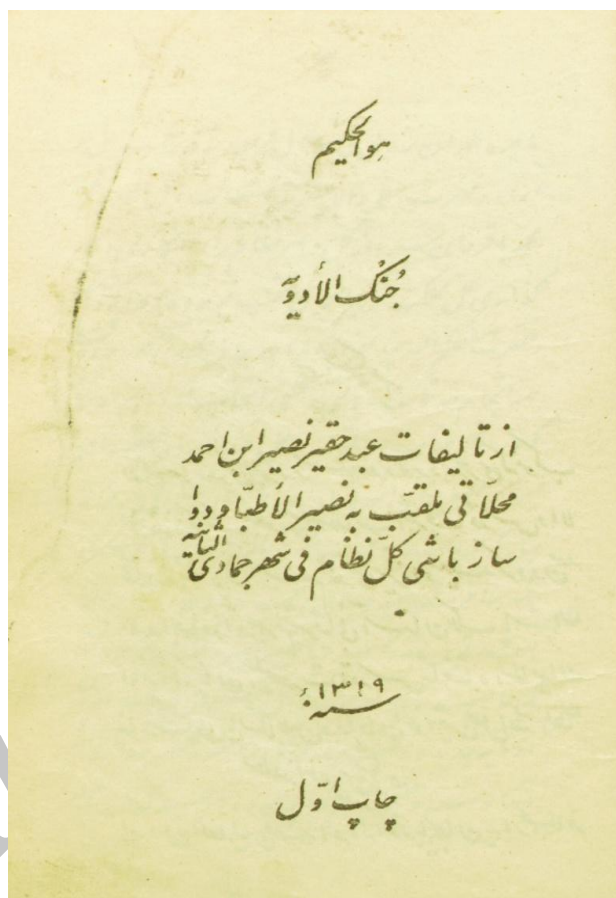 هو الحکیم
جُنگ الأدویّه
از تألیفات عبد حقیر نصیر ابن احمد
محلّاتی ملقّب به نصیر الأطبّا و دوا
ساز باشی کلّ نظام فی شهر جمادی الثانیه
سنه ۱۳۱۹
چاپ اوّل